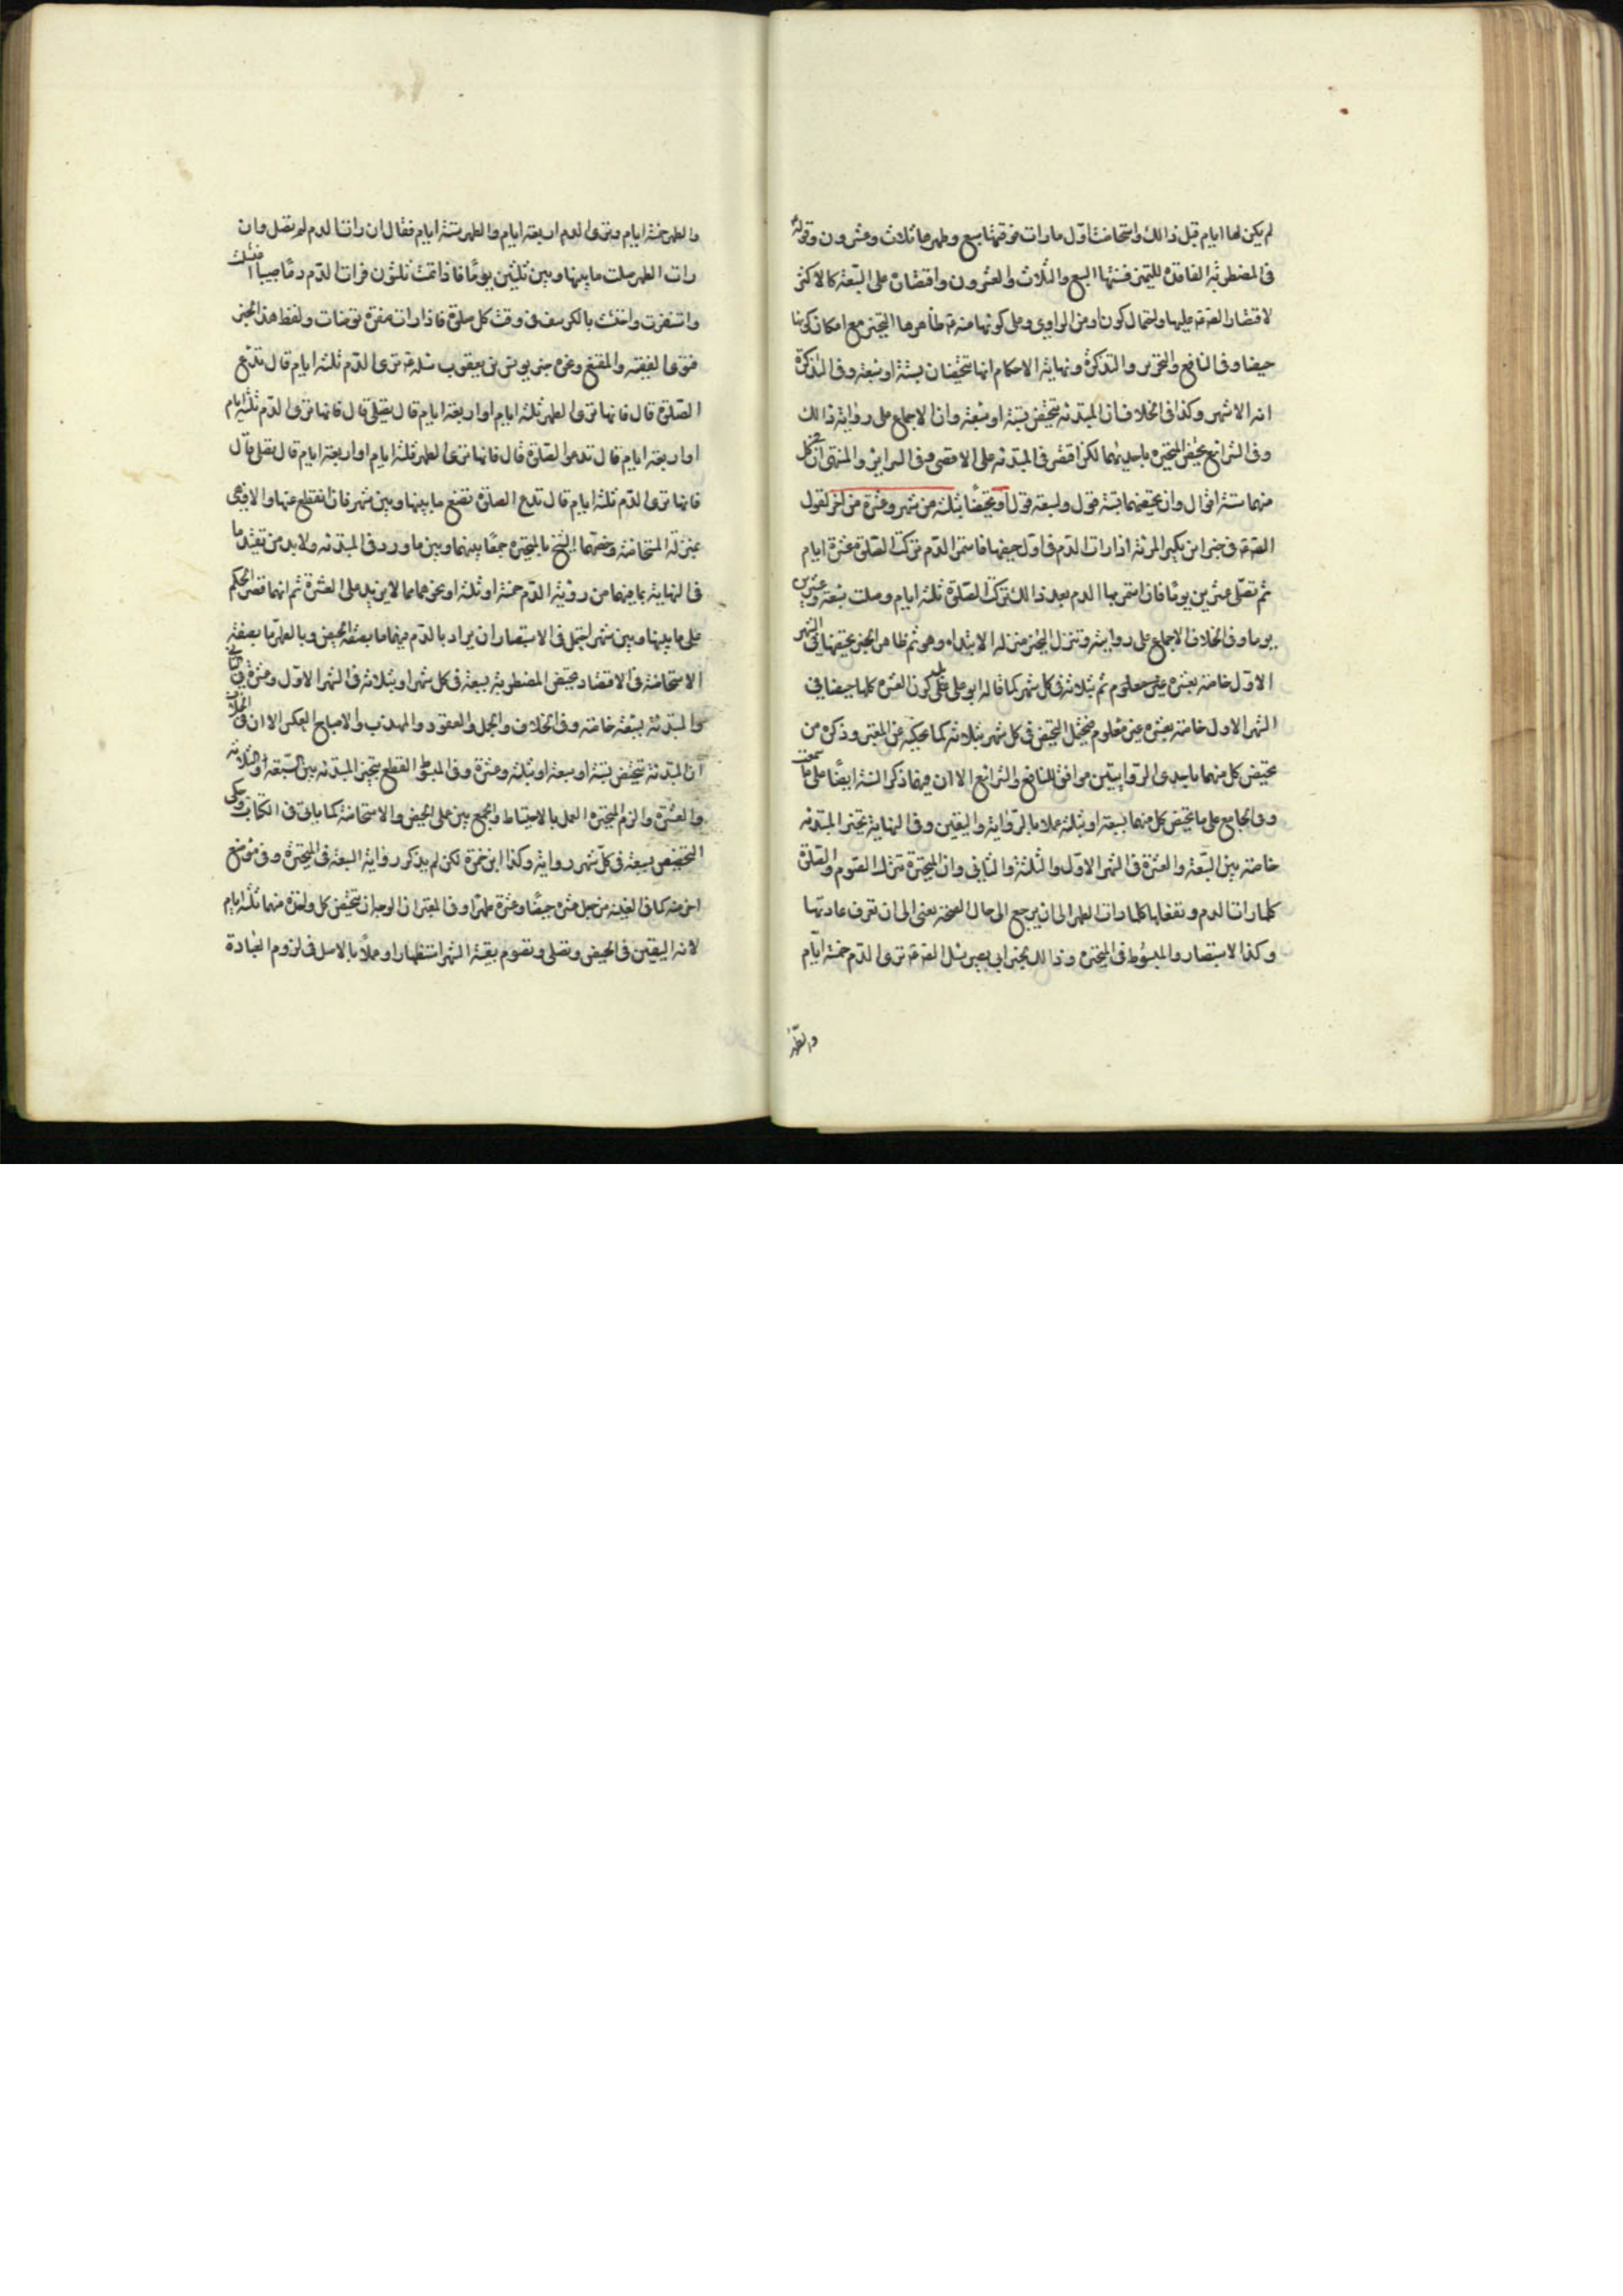 لم يكن لها ايام قبل ذالك واستحاضت اول ما رات فوقتها سبع وطهرها ثلاث وعشرون وقوله
فى المضطربة الفاقدة للتميز فسنتها السبع والثلاث والعشرون واقتصاره على السبعة كالاكثر
لاقتصار الصادق عليها ولاحتمال كون او من الراوي وعلى كونها منه ظاهرها التخيير مع امكان كونها
حيضا وفى النافع والتحرير والتذكرة ونهاية الاحكام انها تتحيضان بستة او سبعة وفى التذكرة
انه الاشهر وكذا فى الخلاف ان المبتدئة تتحيض بستة او سبعة وان الاجماع على رواية ذالك
وفى الشرائع تحيض المتحيرة باحديهما لكن اقتصر فى المبتدئة على الاقصى وفى السرائر والمنتهى ان فى كل
منهما ستة اقوال وان تحيضهما بستة قول وبسبعة قول او تحيضا بثلثة من شهر وعشرة من اخر لقول
الصادق فى خبر ابن بكير المرئة اذا رات الدم فى اول حيضها فاستمر الدم تركت الصلوة عشرة ايام
ثم تصلى عشرين يوما فان استمر بها الدم بعد ذالك تركت الصلوة ثلثة ايام وصلت سبعة وعشرين
يوما وفى الخلاف الاجماع على روايته وتنزل التحير منزلة الابتداء وهو ثم ظاهر الخبر تحيضها فى الشهر
الاول خاصة بعشرة ثم بثلاثة فى كل شهر كما قاله ابو على على كون العشرة كلها حيضا في
الشهر الاول خاصة بعشرة غير معلوم فيحتمل التحيض فى كل شهر بثلاثة كما حكيه عن المعتبر وذكره من
تحيض كل منهما باحدى الروايتين موافق للنافع والشرائع الا ان فيهما ذكر الستة ايضا على ما سمعت
وفى الجامع على ما تحيض كل منهما بسبعة او بثلثة عملا بالرواية واليقين وفى النهاية تخير المبتدئة
خاصة بين السبعة والعشرة فى الشهر الاول والثلثة والثانى وان المتحيرة تترك الصوم والصلوة
كلما رات الدم وتفعلها كلما رات الطهر الى ان يرجع الى حال الصحة يعنى الى ان تعرف عادتها
وكذا الاستبصار والمبسوط فى المتحيرة وذالك لخبر ابى بصير سئل الصادق ترى الدم خمسة ايام
والطهر
والطهر خمسة ايام وترى الدم اربعة ايام والطهر ستة ايام فقال ان رات الدم لم تصل وان
رات الطهر صلت ما بينها وبين ثلثين يوما فاذا تمت ثلثون فرات الدم دما صبيبا اغتسلت
واستثفرت واحتشت بالكرسف فى وقت كل صلوة فاذا رات صفرة توضات ولفظ هذا الخبر
فتوى الفقيه والمقنع ونحوه خبر يونس بن يعقوب سئله ترى الدم ثلثة ايام قال تدع
الصلوة قال فانها ترى الطهر ثلثة ايام او اربعة ايام قال تصلى قال فانها ترى الدم ثلثة ايام
او اربعة ايام قال تدع الصلوة قال فانها ترى الطهر ثلثة ايام او اربعة ايام قال تصلى قال
فانها ترى الدم ثلثة ايام قال تدع الصلوة تصنع ما بينها وبين شهر فان انقطع عنها والا فهى
بمنزلة المستحاضة وخصهما الشيخ بالمتحيرة جمعا بينهما وبين ما ورد فى المبتدئة ولا بد من تقييد ما
فى النهاية بما فيهما من رؤية الدم خمسة او ثلثة او نحوهما مما لا يزيد على العشرة ثم انهما قصر الحكم
على ما بينها وبين شهر احتمل فى الاستبصار ان يراد بالدم فيهما ما بصفة الحيض وبالطهر ما بصفة
الاستحاضة فى الاقتصاد تحيض المضطربة بسبعة فى كل شهر او بثلاثة فى الشهر الاول وعشرة فى الثانى
والمبتدئة بسبعة خاصة وفى الخلاف والجمل والعقود والمهذب والاصباح العكس الا ان فى الخلاف
ان المبتدئة تتحيض بستة او سبعة او بثلثة وعشرة وفى المبسوط القطع بتخير المبتدئة بين السبعة والثلاثة
والعشرة والزم المتحيرة العمل بالاحتياط والجمع بين عملى الحيض والاستحاضة كما ياتى فى الكتاب وحكى
التحيض بسبعة فى كل شهر رواية وكذا ابن حمزة لكن لم يذكر رواية السبعة فى المتحيرة وفى موضع
اخر منه كما فى الغنية من جعل عشرة حيضا وعشرة طهرا وفى المعتبر ان الوجه ان تتحيض كل واحدة منهما ثلثة ايام
لانه اليقين فى الحيض وتصلى وتصوم بقية الشهر استظهارا وعملا بالاصل فى لزوم العبادة